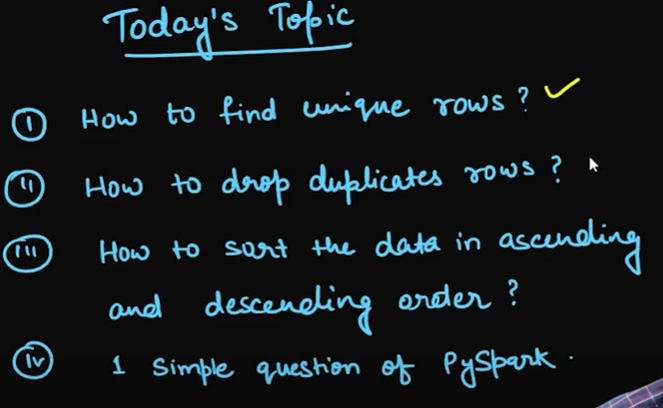 Today's Topic
(i) How to find unique rows? ✓
(ii) How to drop duplicates rows?
(iii) How to sort the data in ascending
and descending order?
(iv) 1 simple question of PySpark.